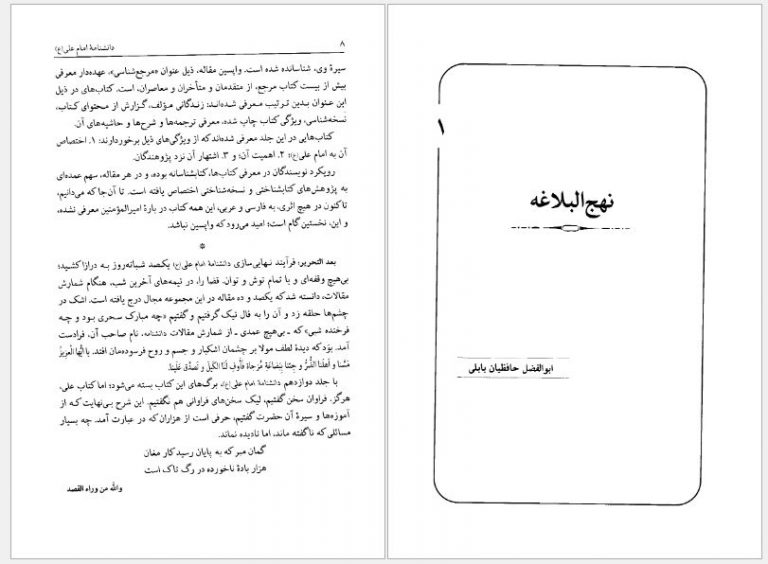 ۸
دانشنامهٔ امام علی(ع)
سیرهٔ وی، شناسانده شده است. واپسین مقاله، ذیل عنوان «مرجع‌شناسی»، عهده‌دار معرفی
بیش از بیست کتاب مرجع، از متقدمان و متأخران و معاصران، است. کتاب‌های در ذیل
این عنوان بدین ترتیب معرفی شده‌اند: زندگانی مؤلف، گزارش از محتوای کتاب،
نسخه‌شناسی، ویژگی کتاب چاپ شده، معرفی ترجمه‌ها و شرح‌ها و حاشیه‌های آن.
کتاب‌هایی در این جلد معرفی شده‌اند که از ویژگی‌های ذیل برخوردارند: ۱. اختصاص
آن به امام علی(ع)؛ ۲. اهمیت آن؛ و ۳. اشتهار آن نزد پژوهندگان.
رویکرد نویسندگان در معرفی کتاب‌ها، کتابشناسانه بوده، و در هر مقاله، سهم عمده‌ای
به پژوهش‌های کتابشناختی و نسخه‌شناختی اختصاص یافته است. تا آن‌جا که می‌دانیم،
تاکنون در هیچ اثری، به فارسی و عربی، این همه کتاب در بارهٔ امیرالمؤمنین معرفی نشده،
و این، نخستین گام است؛ امید می‌رود که واپسین نباشد.
*
بعد التحریر: فرآیند نهایی‌سازی دانشنامهٔ امام علی(ع) یکصد شبانه‌روز به درازا کشید؛
بی‌هیچ وقفه‌ای و با تمام توش و توان. قضا را، در نیمه‌های آخرین شب، هنگام شمارش
مقالات، دانسته شد که یکصد و ده مقاله در این مجموعه مجال درج یافته است. اشک در
چشم‌ها حلقه زد و آن را به فال نیک گرفتیم و گفتیم «چه مبارک سحری بود و چه
فرخنده شبی» که ـ بی‌هیچ عمدی ـ از شمارش مقالات دانشنامه، نام صاحب آن، فرادست
آمد. بوَد که دیدهٔ لطف مولا بر چشمان اشکبار و جسم و روح فرسوده‌مان افتد. یا أیُّها الْعَزیزُ
مَسَّنا و أَهْلَنَا الضُّرُّ و جِئنا بِبِضاعَةٍ مُزجاةٍ فَأَوفِ لَنَا الکَیلَ و تَصَدَّق عَلَینا.
با جلد دوازدهم دانشنامهٔ امام علی(ع)، برگ‌های این کتاب بسته می‌شود؛ اما کتاب علی،
هرگز. فراوان سخن گفتیم، لیک سخن‌های فراوانی هم نگفتیم. این شرح بی‌نهایت که از
آموزه‌ها و سیرهٔ آن حضرت گفتیم، حرفی است از هزاران که در عبارت آمد. چه بسیار
مسائلی که ناگفته ماند، اما نادیده نماند.
گمان مبر که به پایان رسید کار مغان
هزار بادهٔ ناخورده در رگ تاک است
والله من وراء القصد
۱
نهج‌البلاغه
ابوالفضل حافظیان بابلی